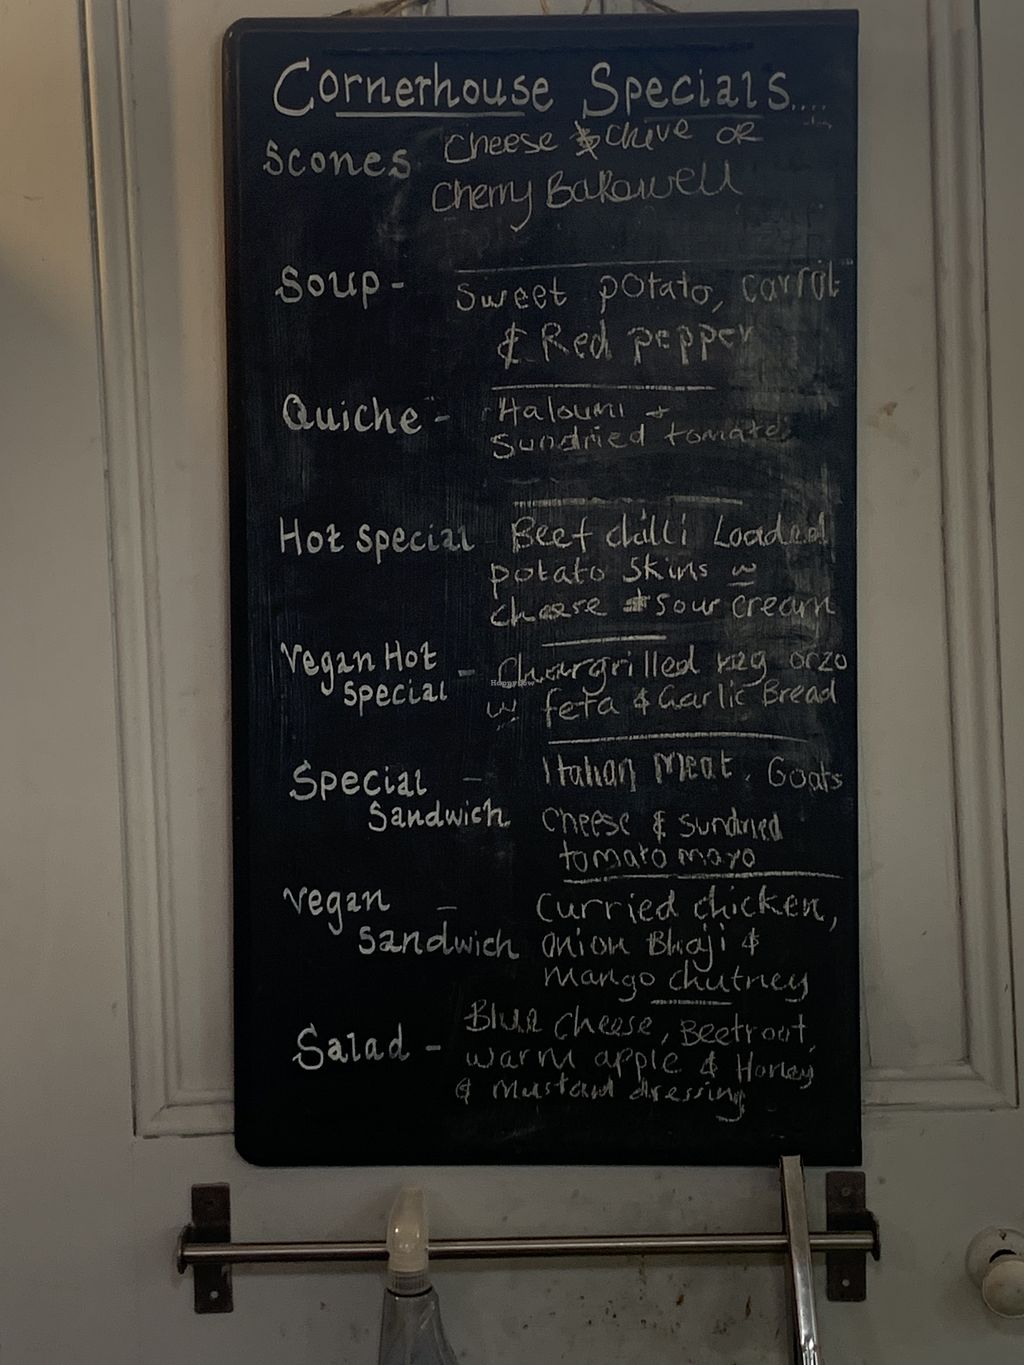 Cornerhouse Specials....
Scones Cheese & Chive OR
Cherry Bakewell
Soup - Sweet potato, carrot
& Red pepper
Quiche - Haloumi +
Sundried tomato
Hot Special Beef chilli Loaded
potato Skins w
cheese + Sour cream
Vegan Hot Special - Chargrilled veg orzo
w feta & Garlic Bread
HappyCow
Special Sandwich - Italian Meat, Goats
Cheese & Sundried
tomato mayo
Vegan Sandwich - Curried chicken,
onion Bhaji &
mango chutney
Salad - Blue Cheese, Beetroot,
warm apple & Honey
& Mustard dressing